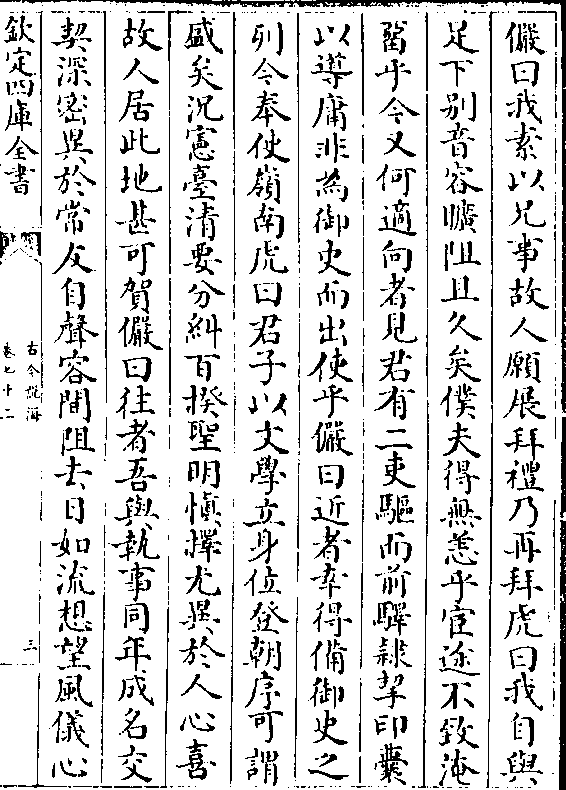 儼曰我素以兄事故人願展拜禮乃再拜虎曰我自與
足下别音容曠阻且久矣僕夫得無恙乎宦途不致淹
留乎今又何適向者見君有二吏驅而前驛隸挈印囊
以導庸非為御史而出使乎儼曰近者幸得備御史之
列今奉使嶺南虎曰君子以文學立身位登朝序可謂
盛矣況憲臺清要分糾百揆聖明慎擇尤異於人心喜
故人居此地甚可賀儼曰往者吾與執事同年成名交
契深密異於常友自聲容間阻去日如流想望風儀心
欽定四庫全書
古今說海
卷七十二
三